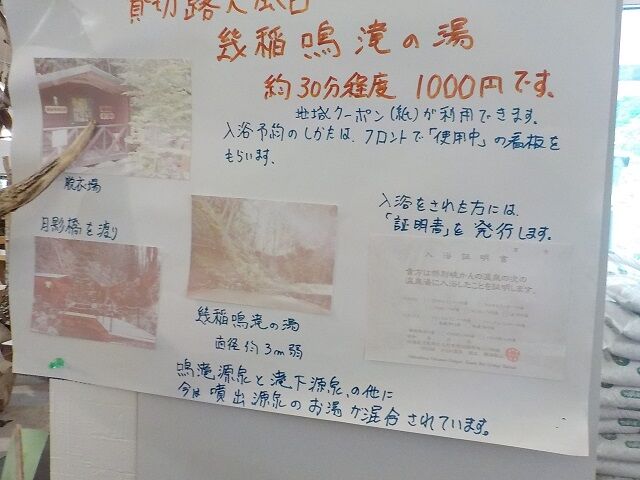 貸切露天風呂
幾稲鳴滝の湯
約30分程度 1000円です。
地域クーポン(紙)が利用できます。
入浴予約のしかたは、フロントで「使用中」の看板を
もらいます。
脱衣場
月影橋を渡り
幾稲鳴滝の湯
直径約3m弱
入浴をされた方には、
「証明書」を発行します。
入浴証明書
温泉湯に入浴したことを証明します。
鳴滝源泉と滝下源泉、の他に
今は噴出源泉のお湯が混合されています。